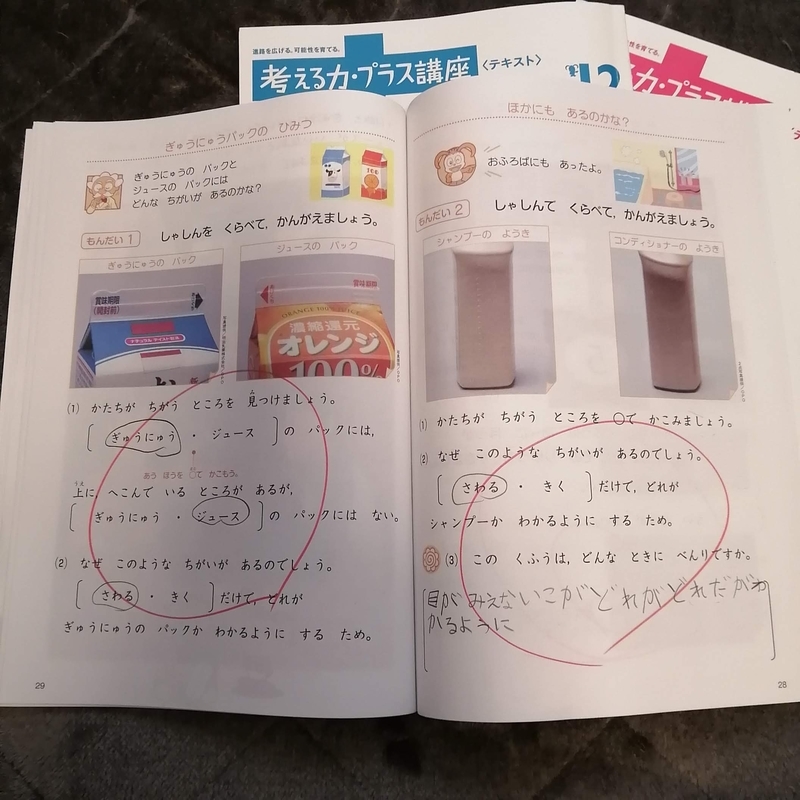 進路を広げる、可能性を育てる。
考える力・プラス講座〈テキスト〉
12
力・プラス
ぎゅうにゅうパックの ひみつ
ぎゅうにゅうの パックと
ジュースの パックには
どんな ちがいが あるのかな?
もんだい1
しゃしんを くらべて、かんがえましょう。
ぎゅうにゅうの パック
ジュースの パック
賞味期限
(開封前)
賞味期限
ORANGE 100% JUICE
濃縮還元
オレンジ
100%
(1) かたちが ちがう ところを 見つけましょう。
[ ぎゅうにゅう ・ ジュース ]の パックには、
あう ほうを ○で かこもう。
上に へこんで いる ところが あるが、
[ ぎゅうにゅう ・ ジュース ]の パックには ない。
(2) なぜ このような ちがいが あるのでしょう。
[ さわる ・ きく ]だけで、どれが
ぎゅうにゅうの パックか わかるように する ため。
29
ほかにも あるのかな?
おふろばにも あったよ。
もんだい2
しゃしんで くらべて、かんがえましょう。
シャンプーの ようき
コンディショナーの ようき
(1) かたちが ちがう ところを ○で かこみましょう。
(2) なぜ このような ちがいが あるのでしょう。
[ さわる ・ きく ]だけで、どれが
シャンプーか わかるように する ため。
(3) この くふうは、どんな ときに べんりですか。
目がみえないこがどれがどれだがわ
かるように
28